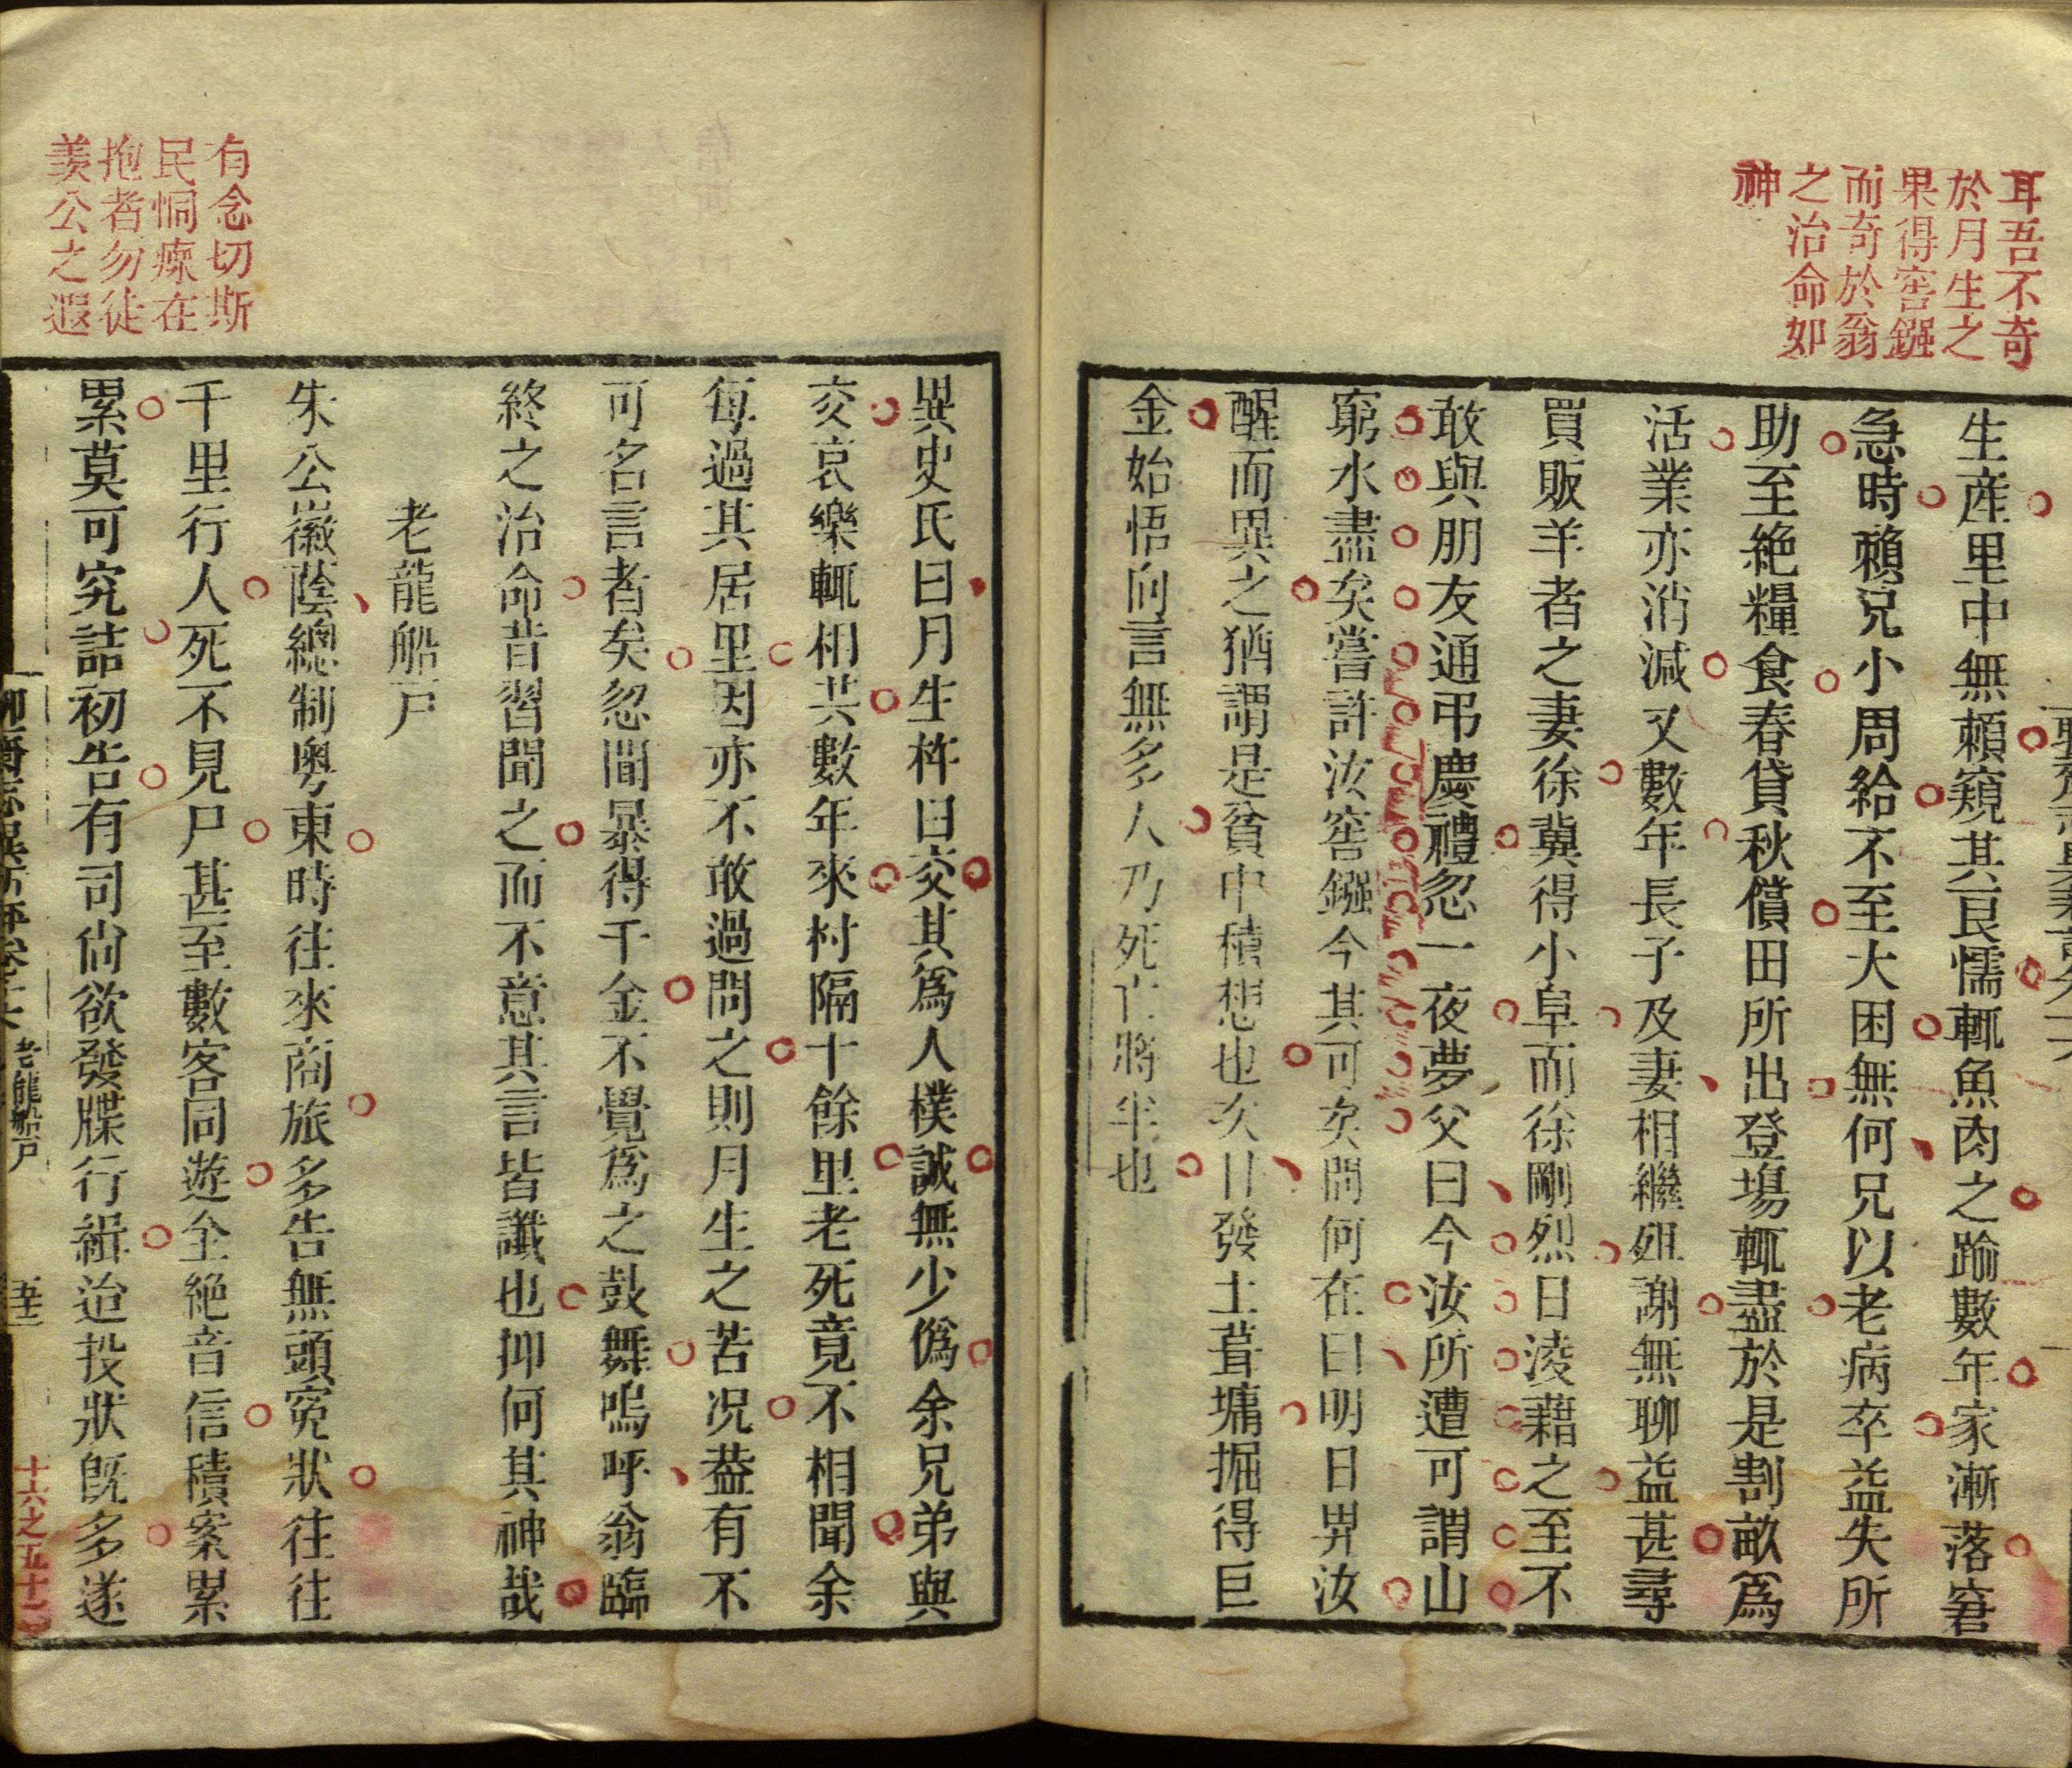 耳吾不奇
於月生之
果得窖鏹
而奇於翁
之治命如
神
生産里中無賴窺其良懦輒魚肉之踰數年家漸落窘
急時賴兄小周給不至大困無何兄以老病卒益失所
助至絶糧食春貸秋償田所出登場輒盡於是割畝爲
活業亦消減又數年長子及妻相繼殂謝無聊益甚尋
買販羊者之妻徐冀得小阜而徐剛烈日淩藉之至不
敢與朋友通弔慶禮忽一夜夢父曰今汝所遭可謂山
窮水盡矣嘗許汝窖鏹今其可矣問何在曰明日畀汝
醒而異之猶謂是貧中積想也次日發土葺墉掘得巨
金始悟向言無多人乃死亡將半也
有念切斯
民恫瘝在
抱者勿徒
羨公之遐
異史氏曰月生杵臼交其爲人樸誠無少僞余兄弟與
交哀樂輒相共數年來村隔十餘里老死竟不相聞余
每過其居里因亦不敢過問之則月生之苦况葢有不
可名言者矣忽聞暴得千金不覺爲之鼓舞嗚呼翁臨
終之治命昔習聞之而不意其言皆讖也抑何其神哉
老龍船戸
朱公徽蔭總制粵東時往來商旅多告無頭寃狀往往
千里行人死不見尸甚至數客同遊全絶音信積案累
累莫可究詰初告有司尙欲發牒行緝迨投狀既多遂
老龍船戸
十六之五十二